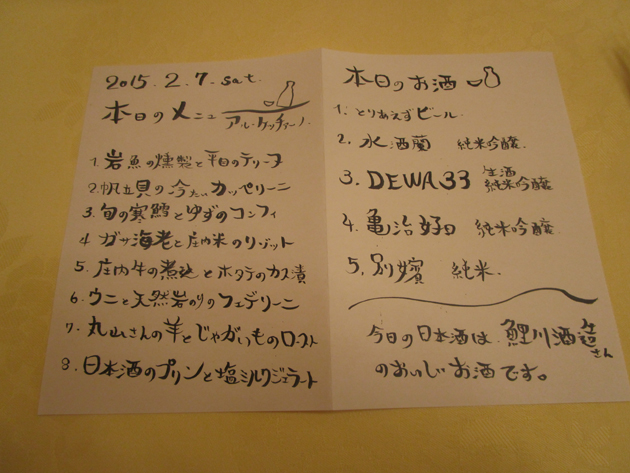 2015. 2. 7. sat.
本日のメニュ
アル・ケッチァーノ
1. 岩魚の燻製と のテリーヌ
2. 帆立貝の冷たいカッペリーニ
3. 旬の寒鱈とゆずのコンフィ
4 ガサ海老と庄内米のリゾット
5. 庄内牛の煮込とホタテのカス漬
6. ウニと天然岩のりのフェデリーニ
7. 丸山さんの羊とじゃがいものロースト
8. 日本酒のプリンと塩ミルクジェラート
本日のお酒
1. とりあえずビール.
2. 水酒蘭 純米吟醸
3. DEWA33 生酒 純米吟醸
4. 亀治好日 純米吟醸
5. 別嬪 純米.
今日の日本酒は 鯉川酒造さん
のおいしいお酒です。